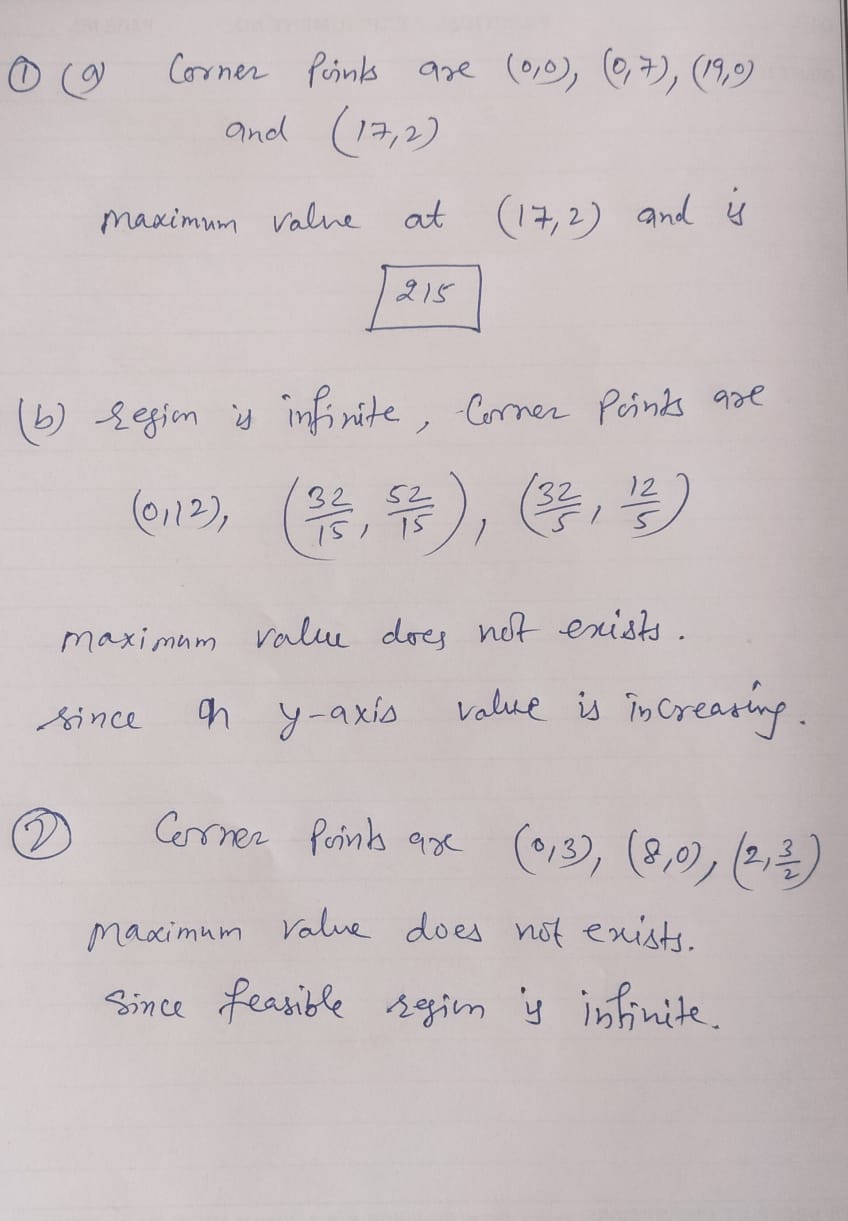 ① (a) Corner Points are (0,0), (0,7), (19,0)
and (17,2)
maximum value at (17,2) and is
215
(b) region is infinite, Corner Points are
(0,12), (32/15, 52/15), (32/5, 12/5)
maximum value does not exists.
since on y-axis value is increasing.
② Corner Points are (0,3), (8,0), (2,3/2)
maximum value does not exists.
Since feasible region is infinite.